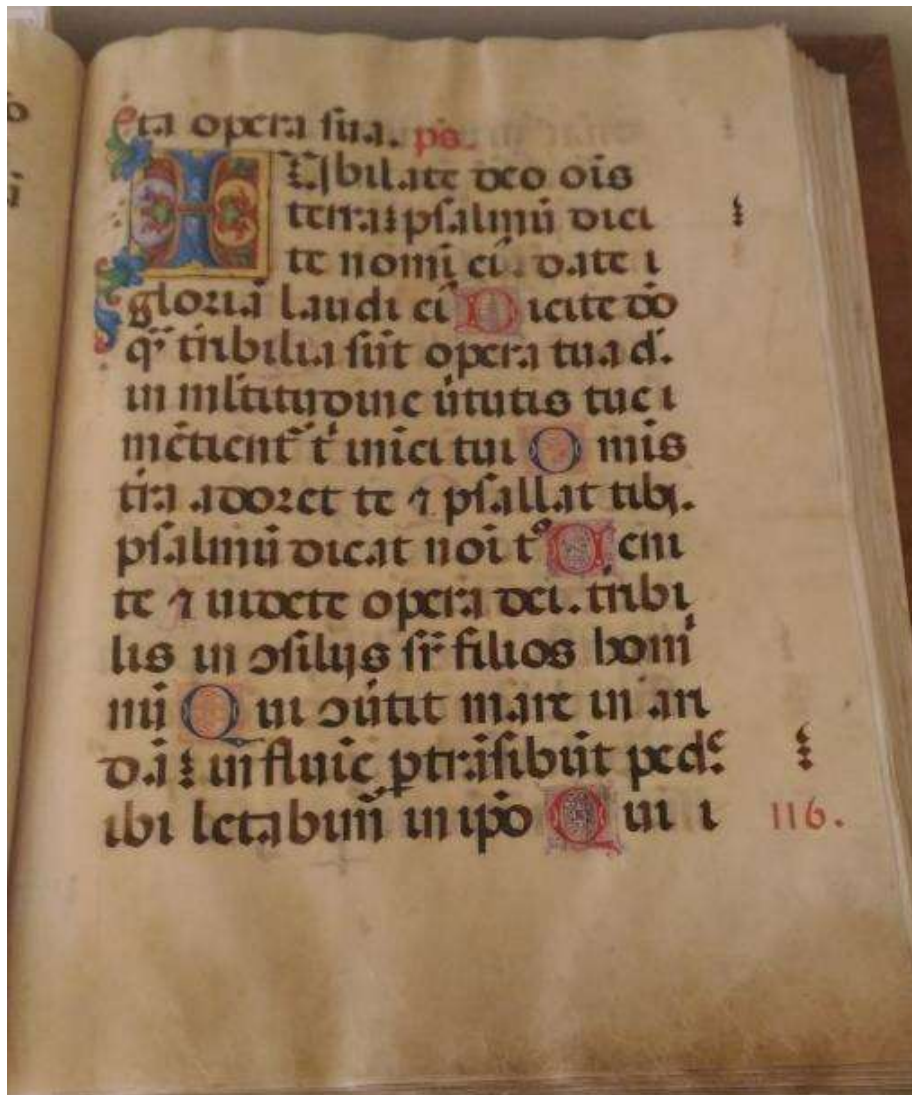 cta opera sua. ps.
IUbilate deo ois
terra: psalmū dici
te nomī eiꝰ. date
gloriā laudi eiꝰ Dicite dō
q̄ tribilia sūt opera tua d.
in mltitudine ūtutis tue i
mētient t inici tui Omis
tra adoret te ⁊ psallat tibi.
psalmū dicat noi t Ueni
te ⁊ uidete opera dei. tribi
lis in ↄsilijs sr filios homi
nū Qui ↄūtit mare in ari
dā: in fluīe ptrāsibūt ped
ibi letabim̄ in ipo Qui i
116.